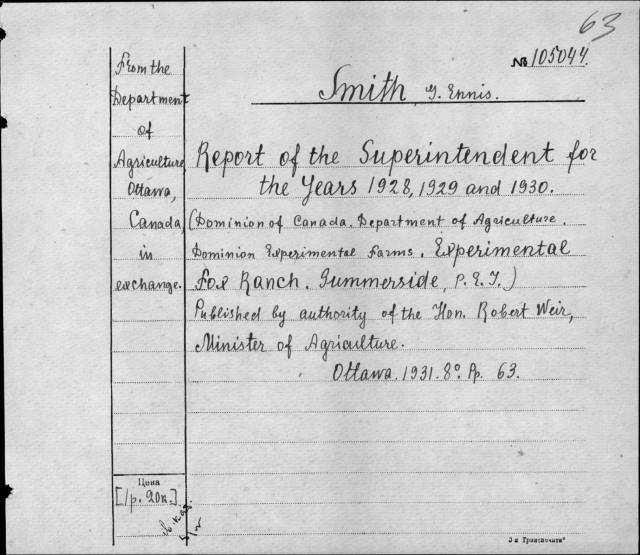 63
№ 105044.
Smith, G. Ennis.
From the
Department
of
Agriculture
Ottawa,
Canada
in
exchange.
Report of the Superintendent for
the Years 1928, 1929 and 1930.
(Dominion of Canada. Department of Agriculture.
Dominion Experimental Farms. Experimental
Fox Ranch. Summerside, P.E.I.)
Published by authority of the Hon. Robert Weir,
Minister of Agriculture.
Ottawa. 1931. 8º. Pp. 63.
Цена
[1р. 20к.]
3-я